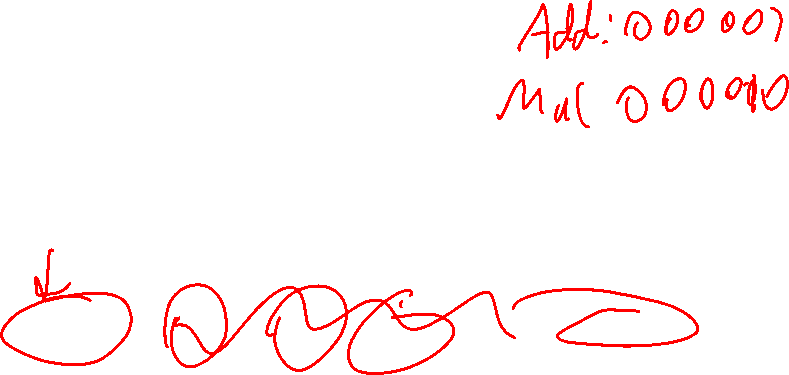 Add: 000001
Mul 000010